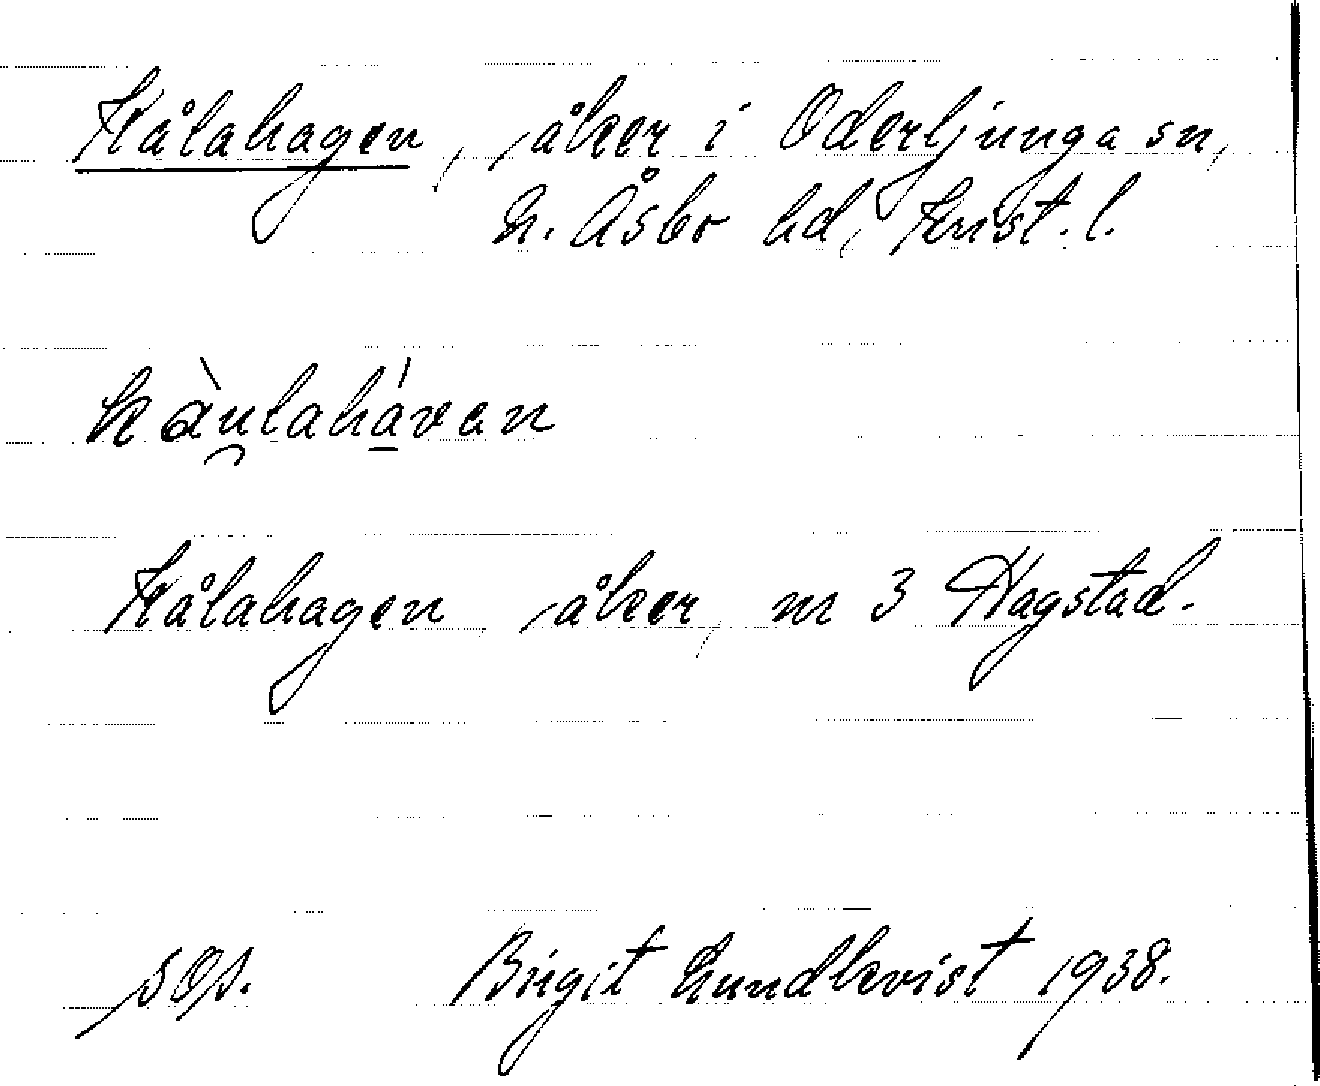 Kålahagen, åker i Oderljunga sn,
N. Åsbo hd, Krist. l.
kàu̯lahá̱van
Kålahagen åker, nr 3 Hagstad.
Birgit Lundkvist 1938.